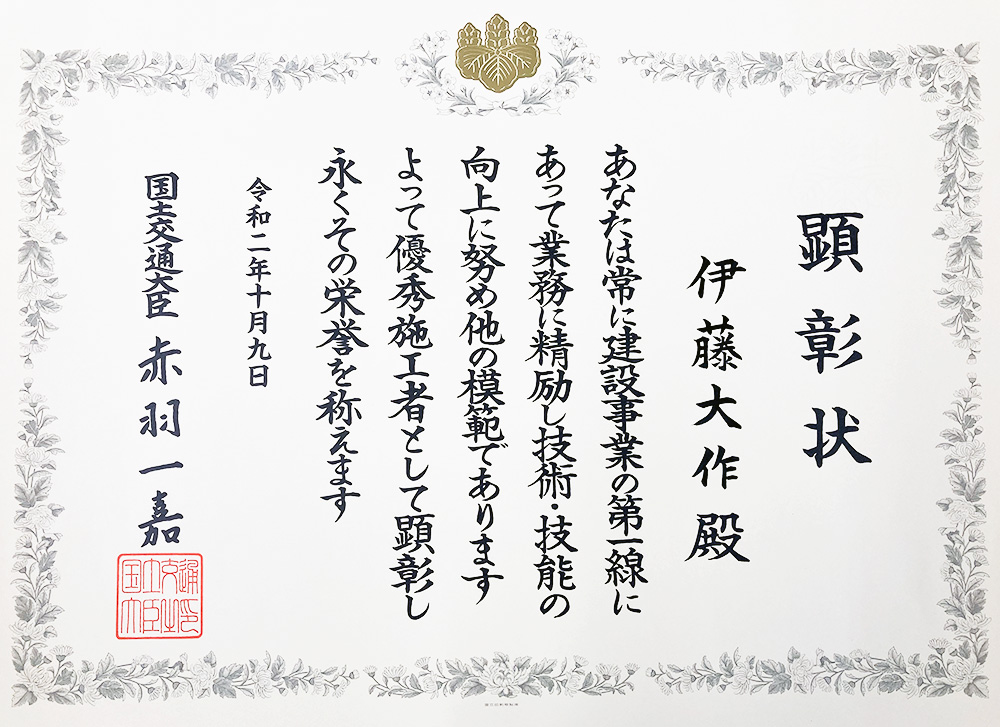 顕彰状
伊藤大作殿
あなたは常に建設事業の第一線に
あって業務に精励し技術・技能の
向上に努め他の模範であります
よって優秀施工者として顕彰し
永くその栄誉を称えます
令和二年十月九日
国土交通大臣 赤羽一嘉
国土交通
大臣之印